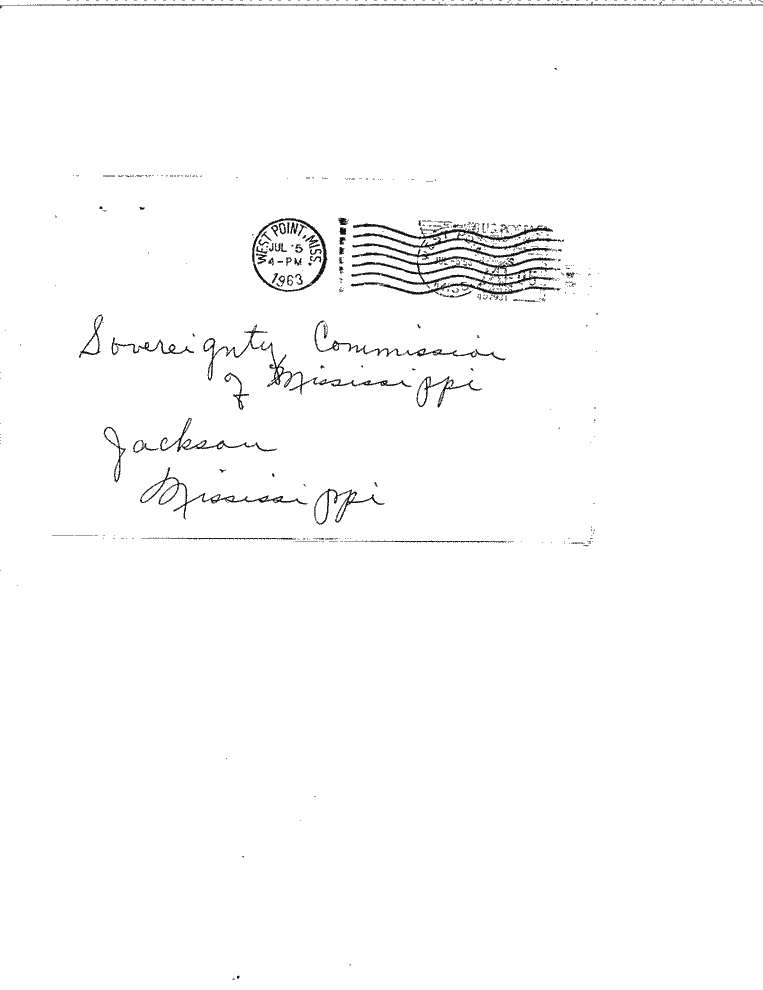 WEST POINT, MISS.
JUL 5
4-PM
1963
U.S. POSTAGE
Sovereignty Commission
of Mississippi
Jackson
Mississippi